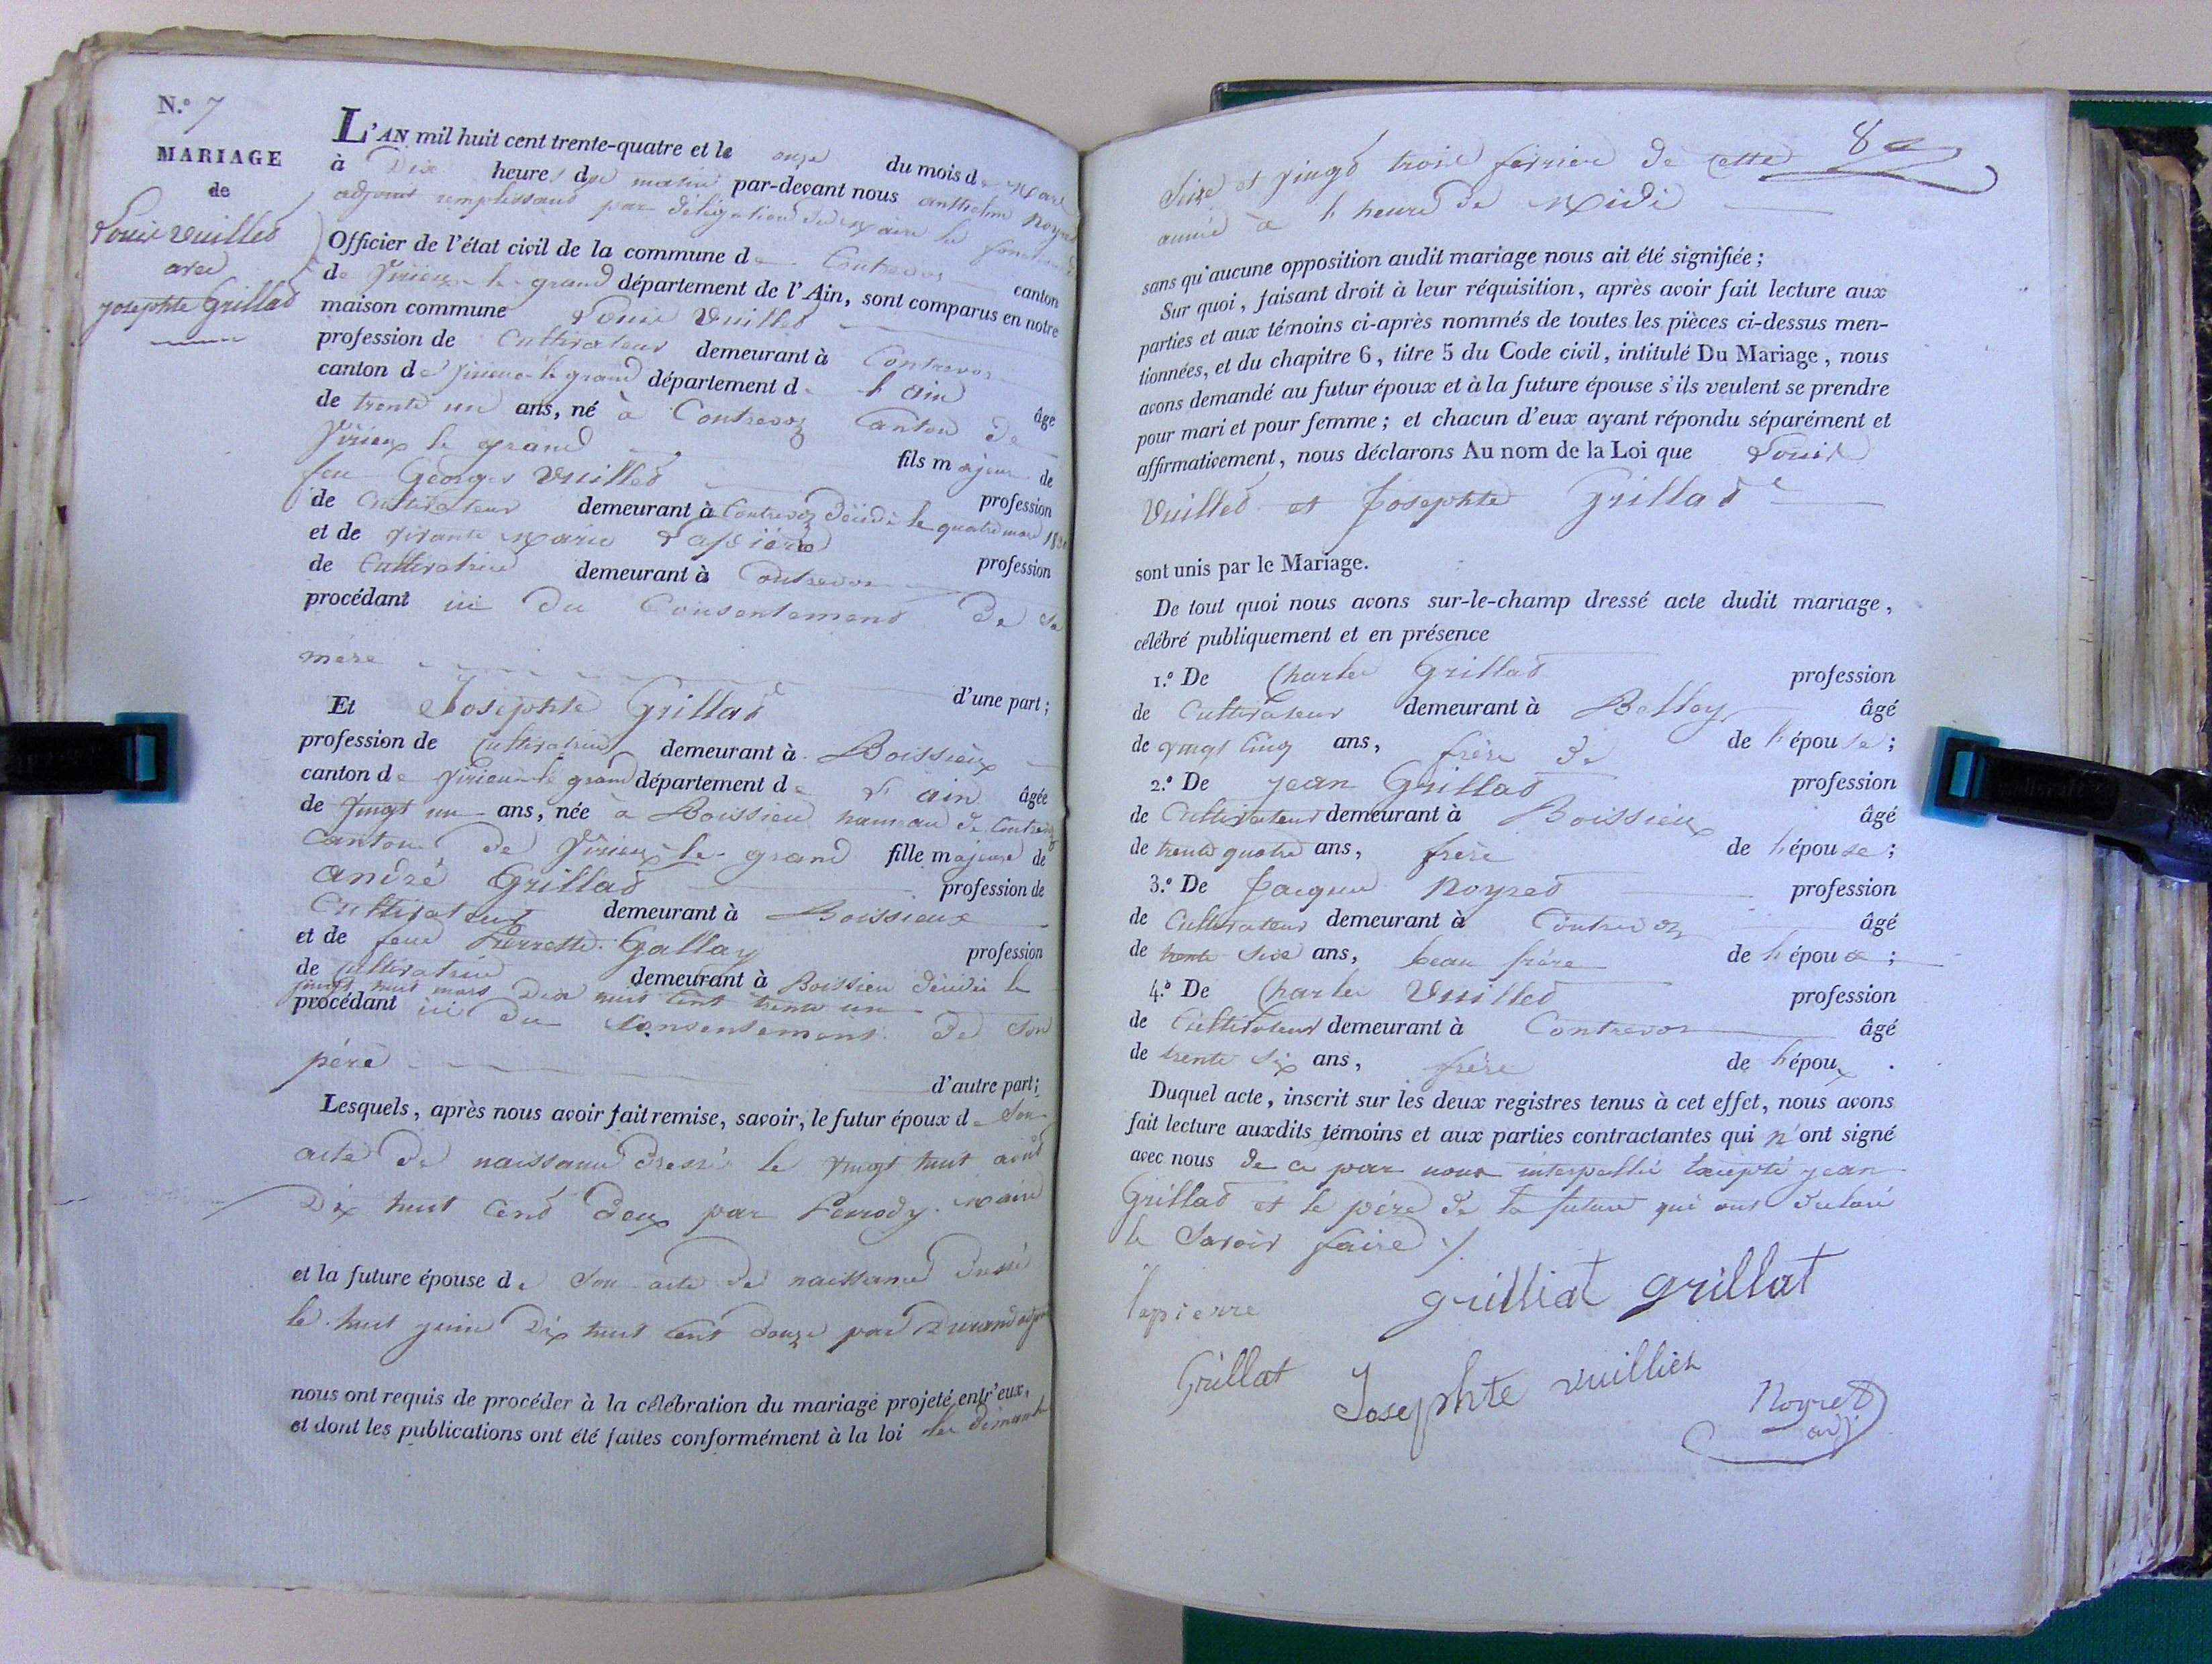 N.° 7
MARIAGE
de
Louis Vuillet
avec
Josephte Grillat
L'AN mil huit cent trente-quatre et le onze du mois de Mars
à Dix heures du matin par-devant nous anthelme Noyret
adjoint remplissant par délégation du Maire les fonctions
Officier de l'état civil de la commune de Contrevoz canton
de Virieux-le-grand département de l'Ain, sont comparus en notre
maison commune Louis Vuillet
profession de Cultivateur demeurant à Contrevoz
canton de Virieux-le grand département de l'Ain âgé
de trente un ans, né à Contrevoz Canton de
Virieux le grand fils majeur de
feu Georges Vuillet profession
de Cultivateur demeurant à Contrevoz décédé le quatre mars
et de vivante Marie Lapierre profession
de Cultivatrice demeurant à Contrevoz
procédant ici du Consentement de sa
mère d'une part;
Et Josephte Grillat
profession de Cultivatrice demeurant à Boissieux
canton de Virieux-le grand département de l'ain âgée
de vingt un ans, née à Boissieu hameau de Contrevoz
Canton de Virieux-le-grand fille majeure de
André Grillat profession de
Cultivateur demeurant à Boissieux
et de feue Pierrette Gallay profession
de Cultivatrice demeurant à Boissieu décédée le
vingt huit mars Dix huit Cent trente un
procédant ici du Consentement de son
père d'autre part;
Lesquels, après nous avoir fait remise, savoir, le futur époux de Son
acte de naissance dressé le vingt huit août
Dix huit Cent Deux par Perrody Maire
et la future épouse de Son acte de naissance dressé
le huit juin Dix huit Cent douze par Durand adjoint
nous ont requis de procéder à la célébration du mariage projeté entr'eux,
et dont les publications ont été faites conformément à la loi les dimanches
8
Seize et vingt trois février de Cette
année à l'heure de Midi
sans qu'aucune opposition audit mariage nous ait été signifiée;
Sur quoi, faisant droit à leur réquisition, après avoir fait lecture aux
parties et aux témoins ci-après nommés de toutes les pièces ci-dessus men-
tionnées, et du chapitre 6, titre 5 du Code civil, intitulé Du Mariage, nous
avons demandé au futur époux et à la future épouse s'ils veulent se prendre
pour mari et pour femme; et chacun d'eux ayant répondu séparément et
affirmativement, nous déclarons Au nom de la Loi que Louis
Vuillet et Josephte Grillat
sont unis par le Mariage.
De tout quoi nous avons sur-le-champ dressé acte dudit mariage,
célébré publiquement et en présence
1.° De Charles Grillat profession
de Cultivateur demeurant à Belley âgé
de vingt Cinq ans, frère de de l'épouse;
2.° De Jean Grillat profession
de Cultivateur demeurant à Boissieux âgé
de trente quatre ans, frère de l'épouse;
3.° De Jacques Noyret profession
de Cultivateur demeurant à Contrevoz âgé
de trente Six ans, beau frère de l'épouse;
4.° De Charles Vuillet profession
de Cultivateur demeurant à Contrevoz âgé
de trente Six ans, frère de l'époux.
Duquel acte, inscrit sur les deux registres tenus à cet effet, nous avons
fait lecture auxdits témoins et aux parties contractantes qui n'ont signé
avec nous de ce par nous interpellé Excepté Jean
Grillat et le père de la future qui ont déclaré
le Savoir faire
lapierre grilliat grillat
Grillat Josephte vuilliet
Noyret
adj.